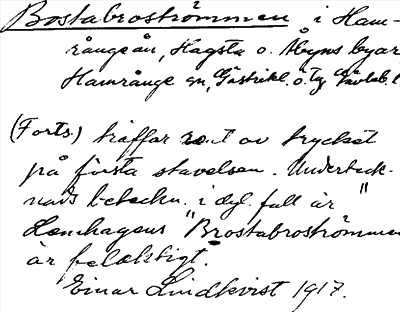 Bostabroströmmen i Ham-
rångeån, Hagsta o. Åbyns byar,
Hamrånge sn, Gästrikl. ö. tg, Gävleb. l
(Forts.) träffar av trycket
på första stavelsen. Underteck-
nads beteckn. i dyl. fall är "
Hemhagens "Brostabroströmmen
är felaktigt.
Einar Lindkvist 1917.